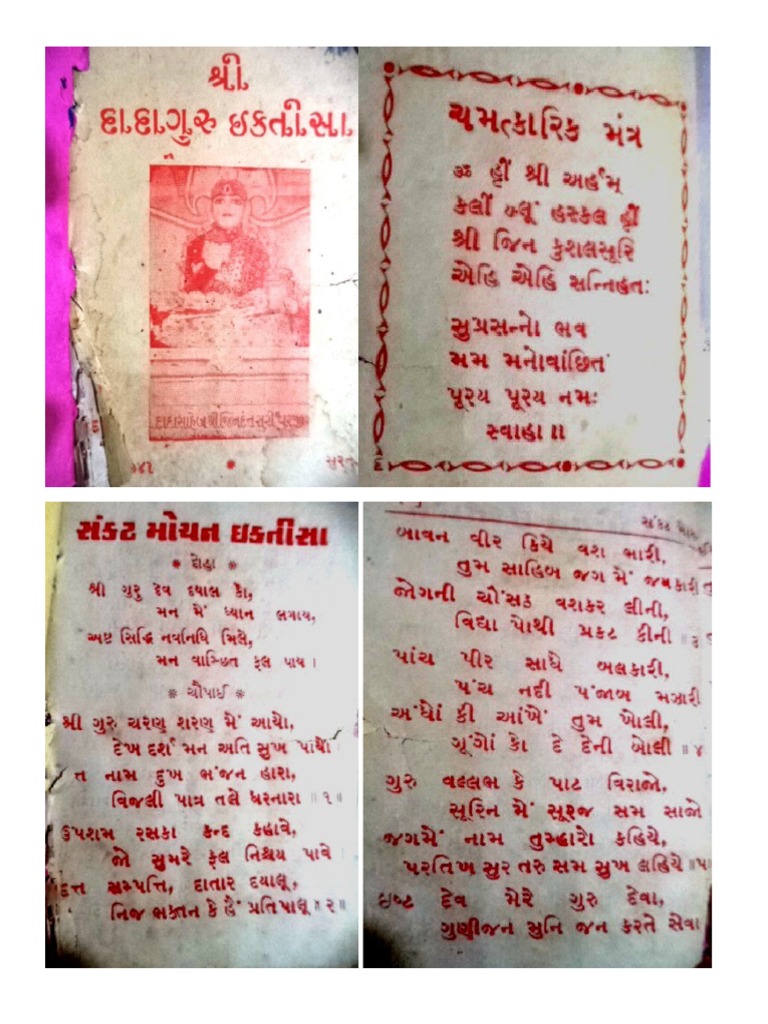 શ્રી
દાદાગુરુ ઇકતીસા
દાદાસાહેબ શ્રી જિનદત્તસૂરી
ચમત્કારિક મંત્ર
ૐ હ્રીં શ્રી અર્હમ્
કલીં બ્લૂં હસ્કલ હ્રીં
શ્રી જિન કુશલસૂરિ
એહિ એહિ સન્નિહતઃ
સુપ્રસન્નો ભવ
મમ મનોવાંછિત
પૂરય પૂરય નમઃ
સ્વાહા ॥
સંકટ મોચન ઇકતીસા
* દોહા *
શ્રી ગુરુ દેવ દયાલ કો,
મન મેં ધ્યાન લગાય,
અષ્ટ સિદ્ધિ નવનિધિ મિલે,
મન વાઞ્છિત ફલ પાય ।
* ચૌપાઈ *
શ્રી ગુરુ ચરણ શરણ મેં આયો,
દેખ દર્શ મન અતિ સુખ પાયો
ત નામ દુખ ભંજન હારા,
વિજલી પાત્ર તલે ધરનારા ॥ ૧ ॥
ઉપશમ રસકા કન્દ કહાવે,
જો સુમરે ફલ નિશ્ચય પાવે
દત્ત સમ્પત્તિ, દાતાર દયાલૂ,
નિજ ભક્તન કે હૈં પ્રતિપાલૂ ॥ ૨ ॥
સંકટ
બાવન વીર કિયે વશ ભારી,
તુમ સાહિબ જગ મેં જયકારી
જોગની ચૌંસઠ વશકર લીની,
વિદ્યા પોથી પ્રકટ કીની ॥ ૩
પાંચ પીર સાધે બલકારી,
પંચ નદી પંજાબ મઝારી
અંધોં કી આંખેં તુમ ખોલી,
ગૂંગોં કો દે દેની બોલી ॥ ૪
ગુરુ વલ્લભ કે પાટ વિરાજો,
સૂરિન મેં સૂરજ સમ સાજો
જગમેં નામ તુમ્હારો કહિયે,
પરતિખ સુર તરુ સમ સુખ લહિયે ॥ ૫
ઇષ્ટ દેવ મેરે ગુરુ દેવા,
ગુણીજન મુનિ જન કરતે સેવા